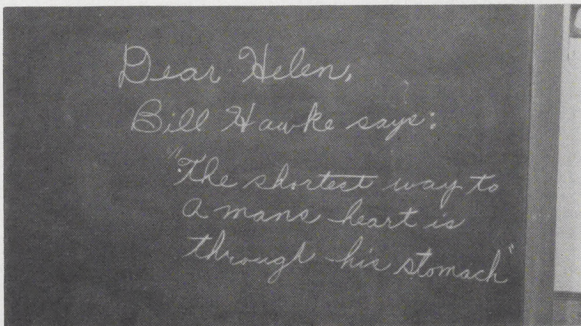 Dear Helen,
Bill Hawke says:
"The shortest way to
a mans heart is
through his stomach"